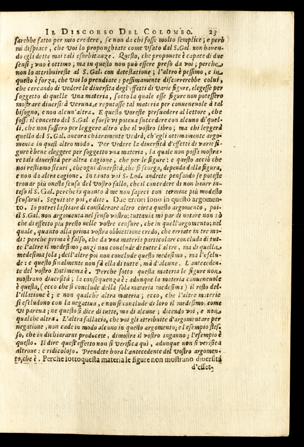 IL DISCORSO DEL COLOMBO. 23
sarebbe fatto per mio credere, se non da chi fusse molto semplice; e però
mi dispiace, che Voi lo proponghiate come vsato dal S. Gal. non hauen-
do egli dette mai tali
sensi; vno è ottimo, ma in questo non può essere preso da voi; perche
non lo attribuireste al S. Gal. con detestazione; l'altro è pessimo, e in
questo è forza, che voi lo prendiate: pessimamente discorrerebbe colui,
che cercando di vedere le diuersità degl'effetti di varie figure, elegesse per
soggetto di quelle vna materia, sotto la quale esse figure non potessero
mostrare diuersità veruna, e reputasse tal materia per conueneuole à tal
bisogno, e non alcun'altra. E questo vorreste persuadere al lettore, che
fusse il concetto del S. Gal. e forse vi poteua succedere con alcuno di quel-
li, che non fussero per leggere altro che il vostro libro; ma chi leggerà
quello del S. Gal. vedrà, ch'egli ottimamente argo-
menta in questi altro modo. Per vedere la diuersità d'effetti de varie fi-
gure è bene eleggere per soggetto vna materia, la quale non possa mostra-
re tal diuersità per altra cagione, che per le figure: e questo acciò che
noi restiamo sicuri, che ogni diuersità, che si scorga, dependa dalla figura,
e non da altra cagione. In tanto voi S. Lod. andate pensando se potesse
trouar più onesta scusa del vostro fallo, che il concedere di non hauer in-
teso il S. Gal. perche in quanto à me non saprei con verità più modesta
scusarui. Seguite poi, e dite. Due errori sono in questo argomen-
to. In prima lasciate di considerare altro circa questo argomento, poi-
che il S. Gal. non argomenta nel senso vostro; tuttauia mi par di notare non sò
che di difetto più presto nelle vostre censure, che in quell'argomento; nel
quale, quanto alla prima vostra obbiezzione credo, che erriate in tre mo-
di: perche prima è falso, che da vna materia particolare concluda di tut-
te l'altre il medesimo, anzi non conclude di tutte l'altre, ma di quella
medesima sola; dell'altre poi non conclude questo medesimo, ma
e questo finalmente non fà di tutte, mà d'alcune. L'antecedente
del vostro Entimema è. Perche sotto questa materia le figure non
mostrano diuersità; la conseguenza è; adunque la materia conueneuole
è questa, (ecco che si conclude della sola materia medesima) il resto del-
l'illazione è; e non qualche altra materia; ecco, che l'altre materie
si escludono con la negatiua, e non si conclude di loro il medesimo. come
voi pensate; e non si dice di tutte, ma di alcune; dicendo voi, e non
qualche altra. L'altra fallacia, che voi gli attribuite d'argomentare per
negazione, non cade in modo alcuno in questo argomento; e l'esempio stes-
so, che in dichiarazione producete, dimostra il vostro inganno; l'esempio è
questo. Il dire quest'effetto non si verifica quì, adunque non si verifica
altroue; è ridicoloso. Prendete hora l'antecedente del vostro argomen-
to, che è. Perche sotto questa materia le figure non mostrano diuersità
d'effet-